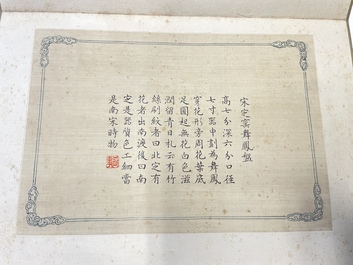 宋定窯舞鳳盤
高七分深六分口徑
七寸器中劃為舞鳳
穿花形旁周花葉底
足圓起無花白色滋
潤留青日札云有竹
絲刷紋者曰北定有
花者出南渡後曰南
定是器質色工細當
是南宋時物